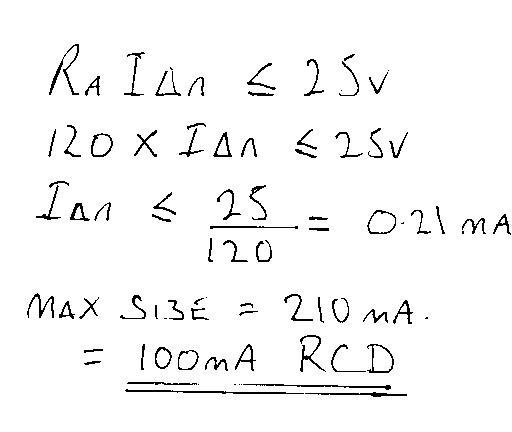 RA IΔn ≤ 25V
120 X IΔn ≤ 25V
IΔn ≤ 25/120 = 0.21 mA
MAX SIZE = 210 mA.
= 100mA RCD